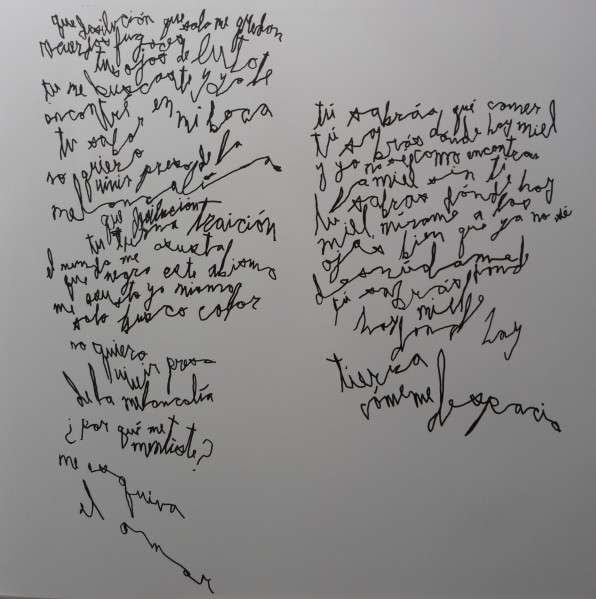 que desilución que solo me quedan
recuerdos fugaces
tus ojos de
tu me buscaste y yo te
encontré en mi boca
tu sabor
no quiero
vivir preso de la
melancolía
que desilución
tu fu una traición
el mundo me asusta
que negro este mismo
me asusto yo mismo
solo busco color
no quiero
vivir preso
de la melancolía
¿por qué me t
mentiste?
me esquiva
el amar
tú sabrás qué comer
tú sabrás donde hay miel
y yo no se como encontrar
la miel sin ti
tu sabras dónde hay
miel mírame a los
ojos bien que ya no sé
desnúdame
tú sabrás dond
hay miel
dond hay
tierra
cómeme despacio